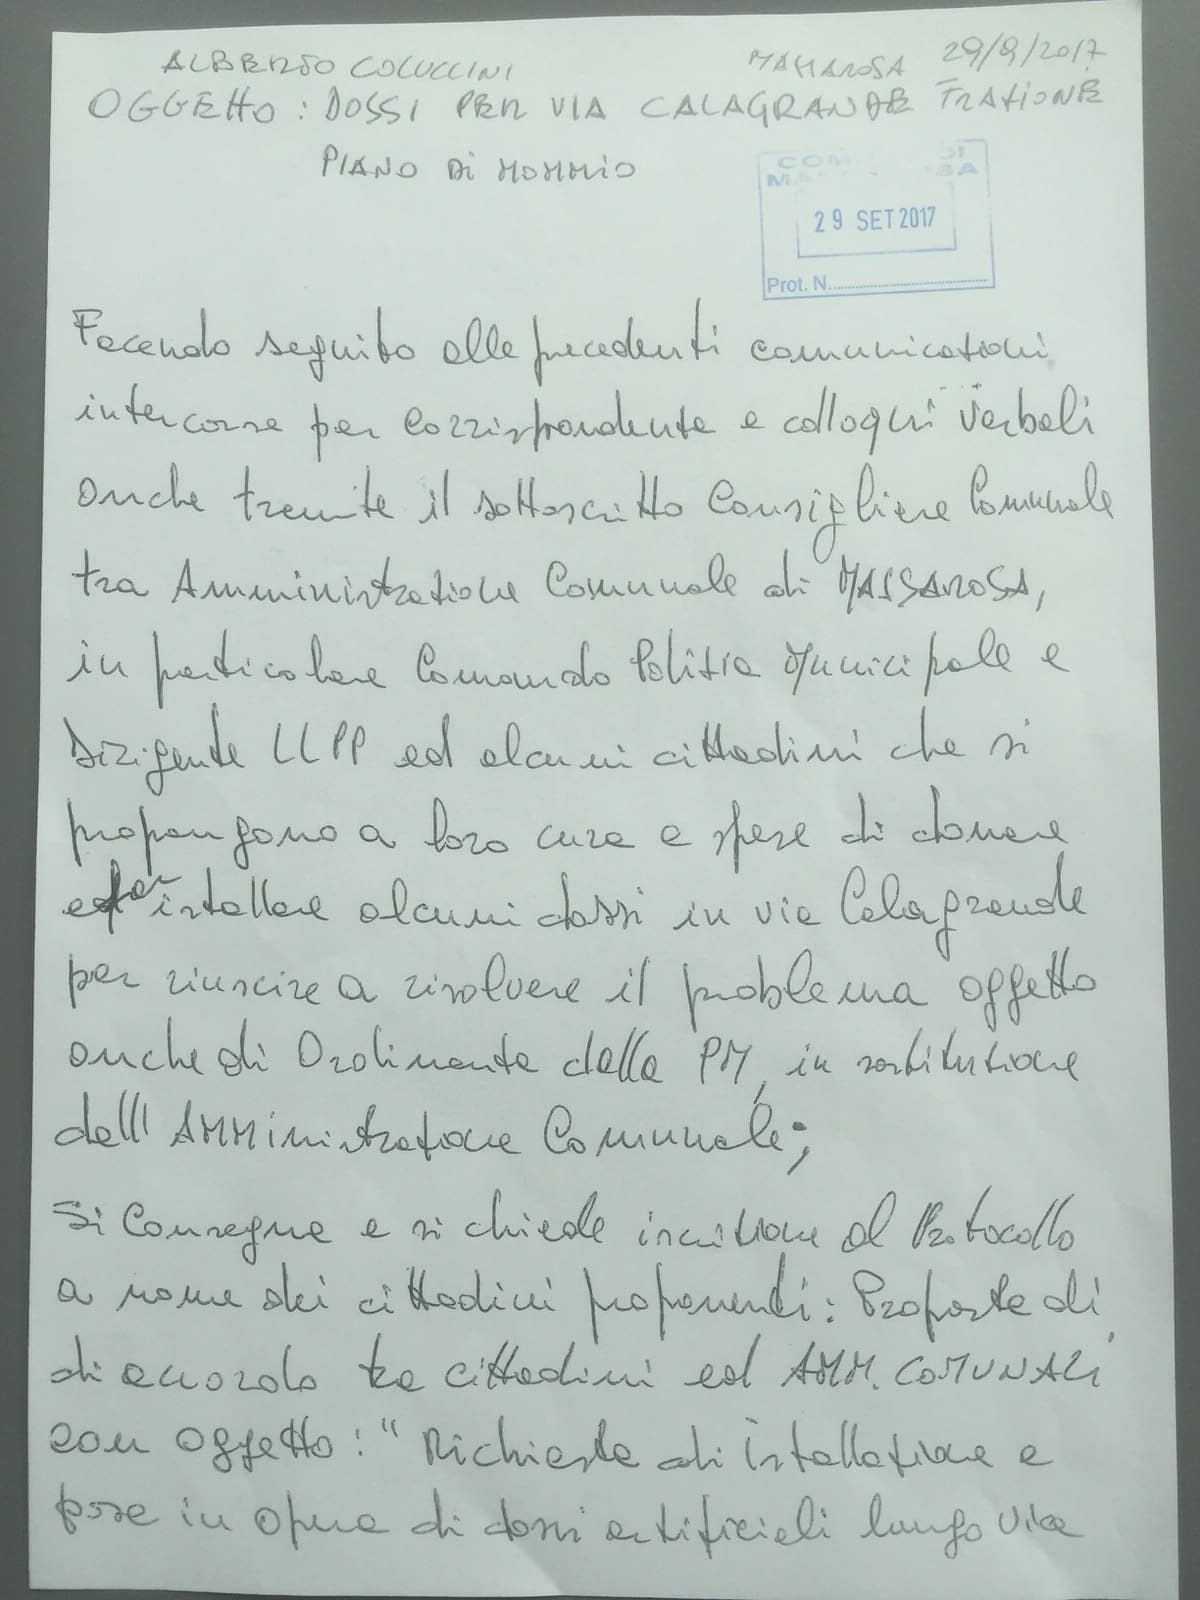 ALBERTO COLUCCINI MASSAROSA 29/9/2017
OGGETTO: DOSSI PER VIA CALAGRANDE FRAZIONE
PIANO Di MOMMiO
COM DI
MA SA
29 SET 2017
Prot. N.
Facendo seguito alle precedenti comunicazioni
intercorse per corrispondenza e colloqui verbali
anche tramite il sottoscritto Consigliere Comunale
tra Amministrazione Comunale di MASSAROSA,
in particolare Comando Polizia Municipale e
Dirigente LLPP ed alcuni cittadini che si
propongono a loro cura e spese di donare
e far istallare alcuni dossi in via Calagrande
per riuscire a risolvere il problema oggetto
anche di Ordinanza della PM, in sostituzione
dell'AMMinistrazione Comunale;
Si Consegna e si chiede iscrizione al Protocollo
a nome dei cittadini proponenti: Proposta di
di accordo tra cittadini ed AMM. COMUNALE
con oggetto: "Richiesta di istallazione e
posa in opera di dossi artificiali lungo via